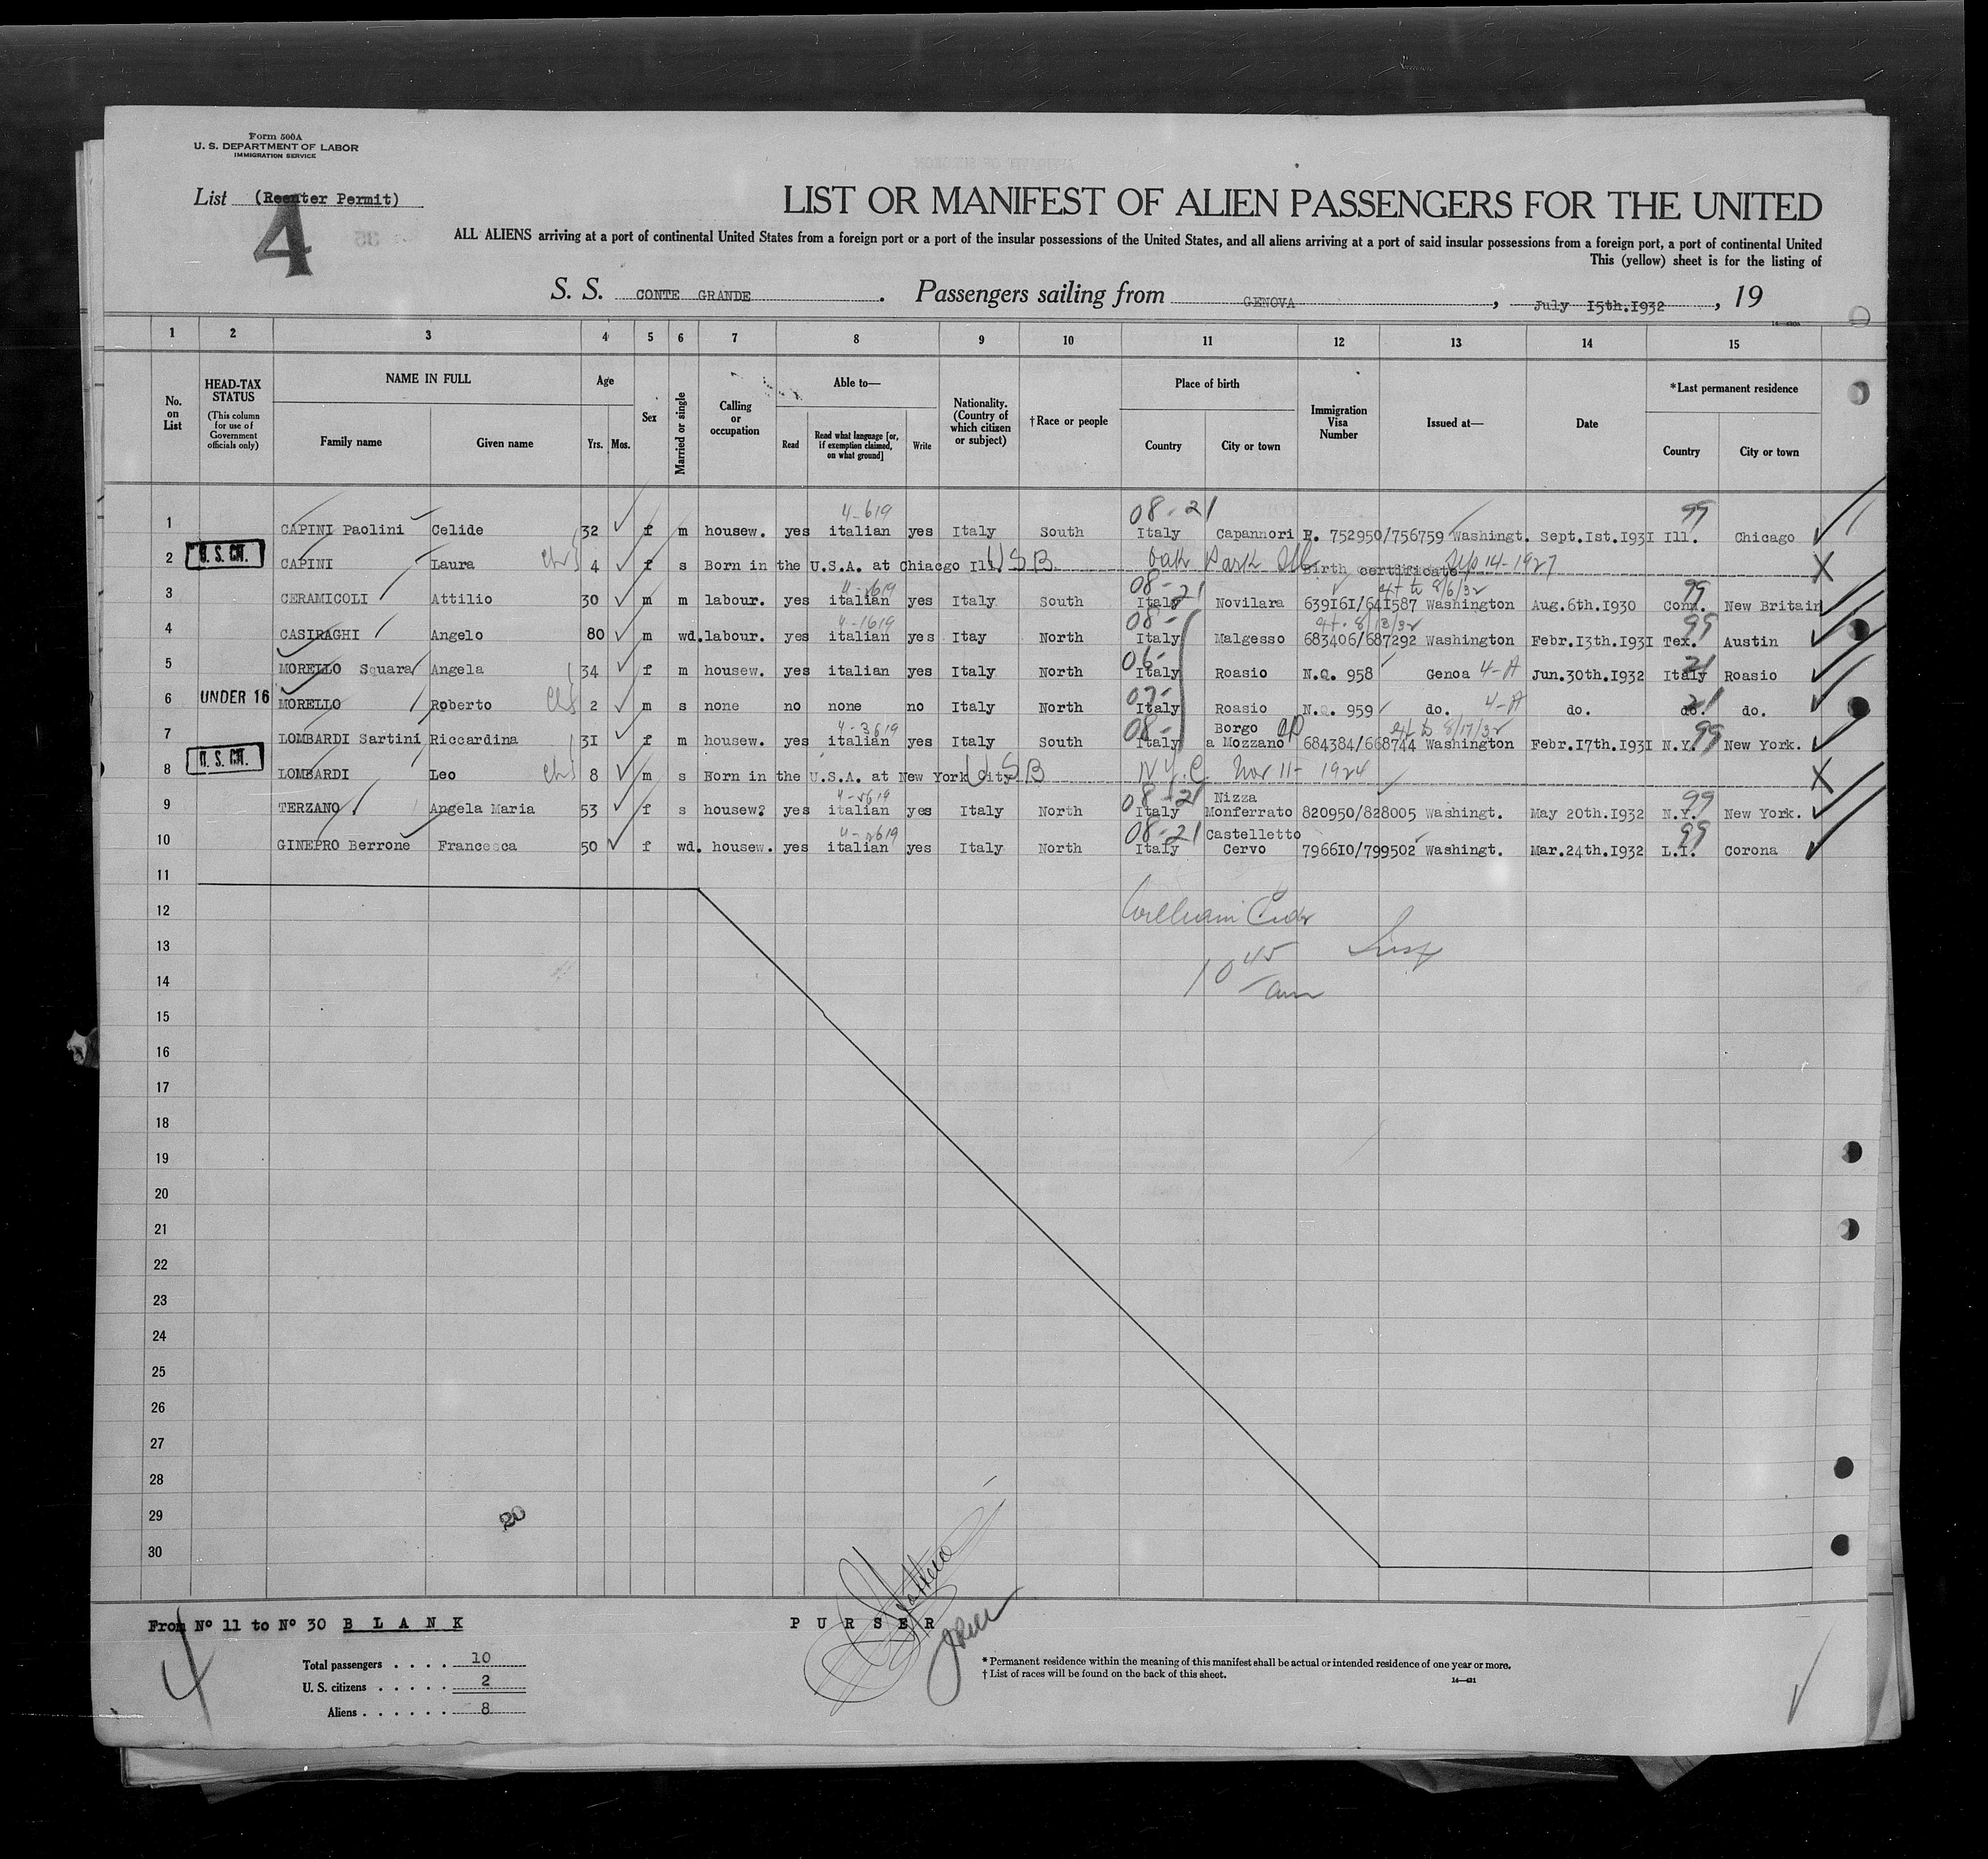 Form 500A
U. S. DEPARTMENT OF LABOR
IMMIGRATION SERVICE
List (Reenter Permit)
4
LIST OR MANIFEST OF ALIEN PASSENGERS FOR THE UNITED
ALL ALIENS arriving at a port of continental United States from a foreign port or a port of the insular possessions of the United States, and all aliens arriving at a port of said insular possessions from a foreign port, a port of continental United
This (yellow) sheet is for the listing of
S. S. CONTE GRANDE . Passengers sailing from GENOVA , July 15th.1932 , 19
1 2 3 4 5 6 7 8 9 10 11 12 13 14 15
No. on List
HEAD-TAX STATUS (This column for use of Government officials only)
NAME IN FULL
Family name Given name
Age
Yrs. Mos.
Sex
Married or single
Calling or occupation
Able to—
Read Read what language [or, if exemption claimed, on what ground] Write
Nationality. (Country of which citizen or subject)
† Race or people
Place of birth
Country City or town
Immigration Visa Number
Issued at—
Date
*Last permanent residence
Country City or town
4-619 08-21 99
1 CAPINI Paolini Celide 32 f m housew. yes italian yes Italy South Italy Capannori P. 752950/756759 Washingt. Sept.1st.1931 Ill. Chicago
2 U. S. CIT. CAPINI Laura 4 f s Born in the U.S.A. at Chiacgo Ill. USB Oak Park Ill Birth certificate Sep 14-1927 X
08-21 ext to 8/6/32 99
3 CERAMICOLI Attilio 30 m m labour. yes italian yes Italy South Italy Novilara 639161/641587 Washington Aug.6th.1930 Conn. New Britain
4-1619 08- 8/13/32 99
4 CASIRAGHI Angelo 80 m wd. labour. yes italian yes Itay North Italy Malgesso 683406/687292 Washington Febr.13th.1931 Tex. Austin
06- 21
5 MORELLO Squara Angela 34 f m housew. yes italian yes Italy North Italy Roasio N.Q. 958 Genoa 4-A Jun.30th.1932 Italy Roasio
07- 21
6 UNDER 16 MORELLO Roberto 2 m s none no none no Italy North Italy Roasio N.Q. 959 do. 4-A do. do. do.
4-3619 08- ext to 8/17/32 99
7 LOMBARDI Sartini Riccardina 31 f m housew. yes italian yes Italy South Italy Borgo a Mozzano 684384/668744 Washington Febr.17th.1931 N.Y. New York.
8 U. S. CIT. LOMBARDI Leo 8 m s Born in the U.S.A. at New York City USB N.Y.C Nov 11- 1924 X
08-21 99
9 TERZANO Angela Maria 53 f s housew? yes italian yes Italy North Italy Nizza Monferrato 820950/828005 Washingt. May 20th.1932 N.Y. New York.
08-21 99
10 GINEPRO Berrone Francesca 50 f wd. housew. yes italian yes Italy North Italy Castelletto Cervo 796610/799502 Washingt. Mar.24th.1932 L.I. Corona
11
12 William
13 Insp
14 10 45 am
15
16
17
18
19
20
21
22
23
24
25
26
27
28
29 20
30
From Nº 11 to Nº 30 B L A N K
P U R S E R
4
Total passengers . . . . 10
U. S. citizens . . . . . 2
Aliens . . . . . . 8
* Permanent residence within the meaning of this manifest shall be actual or intended residence of one year or more.
† List of races will be found on the back of this sheet.
14—431